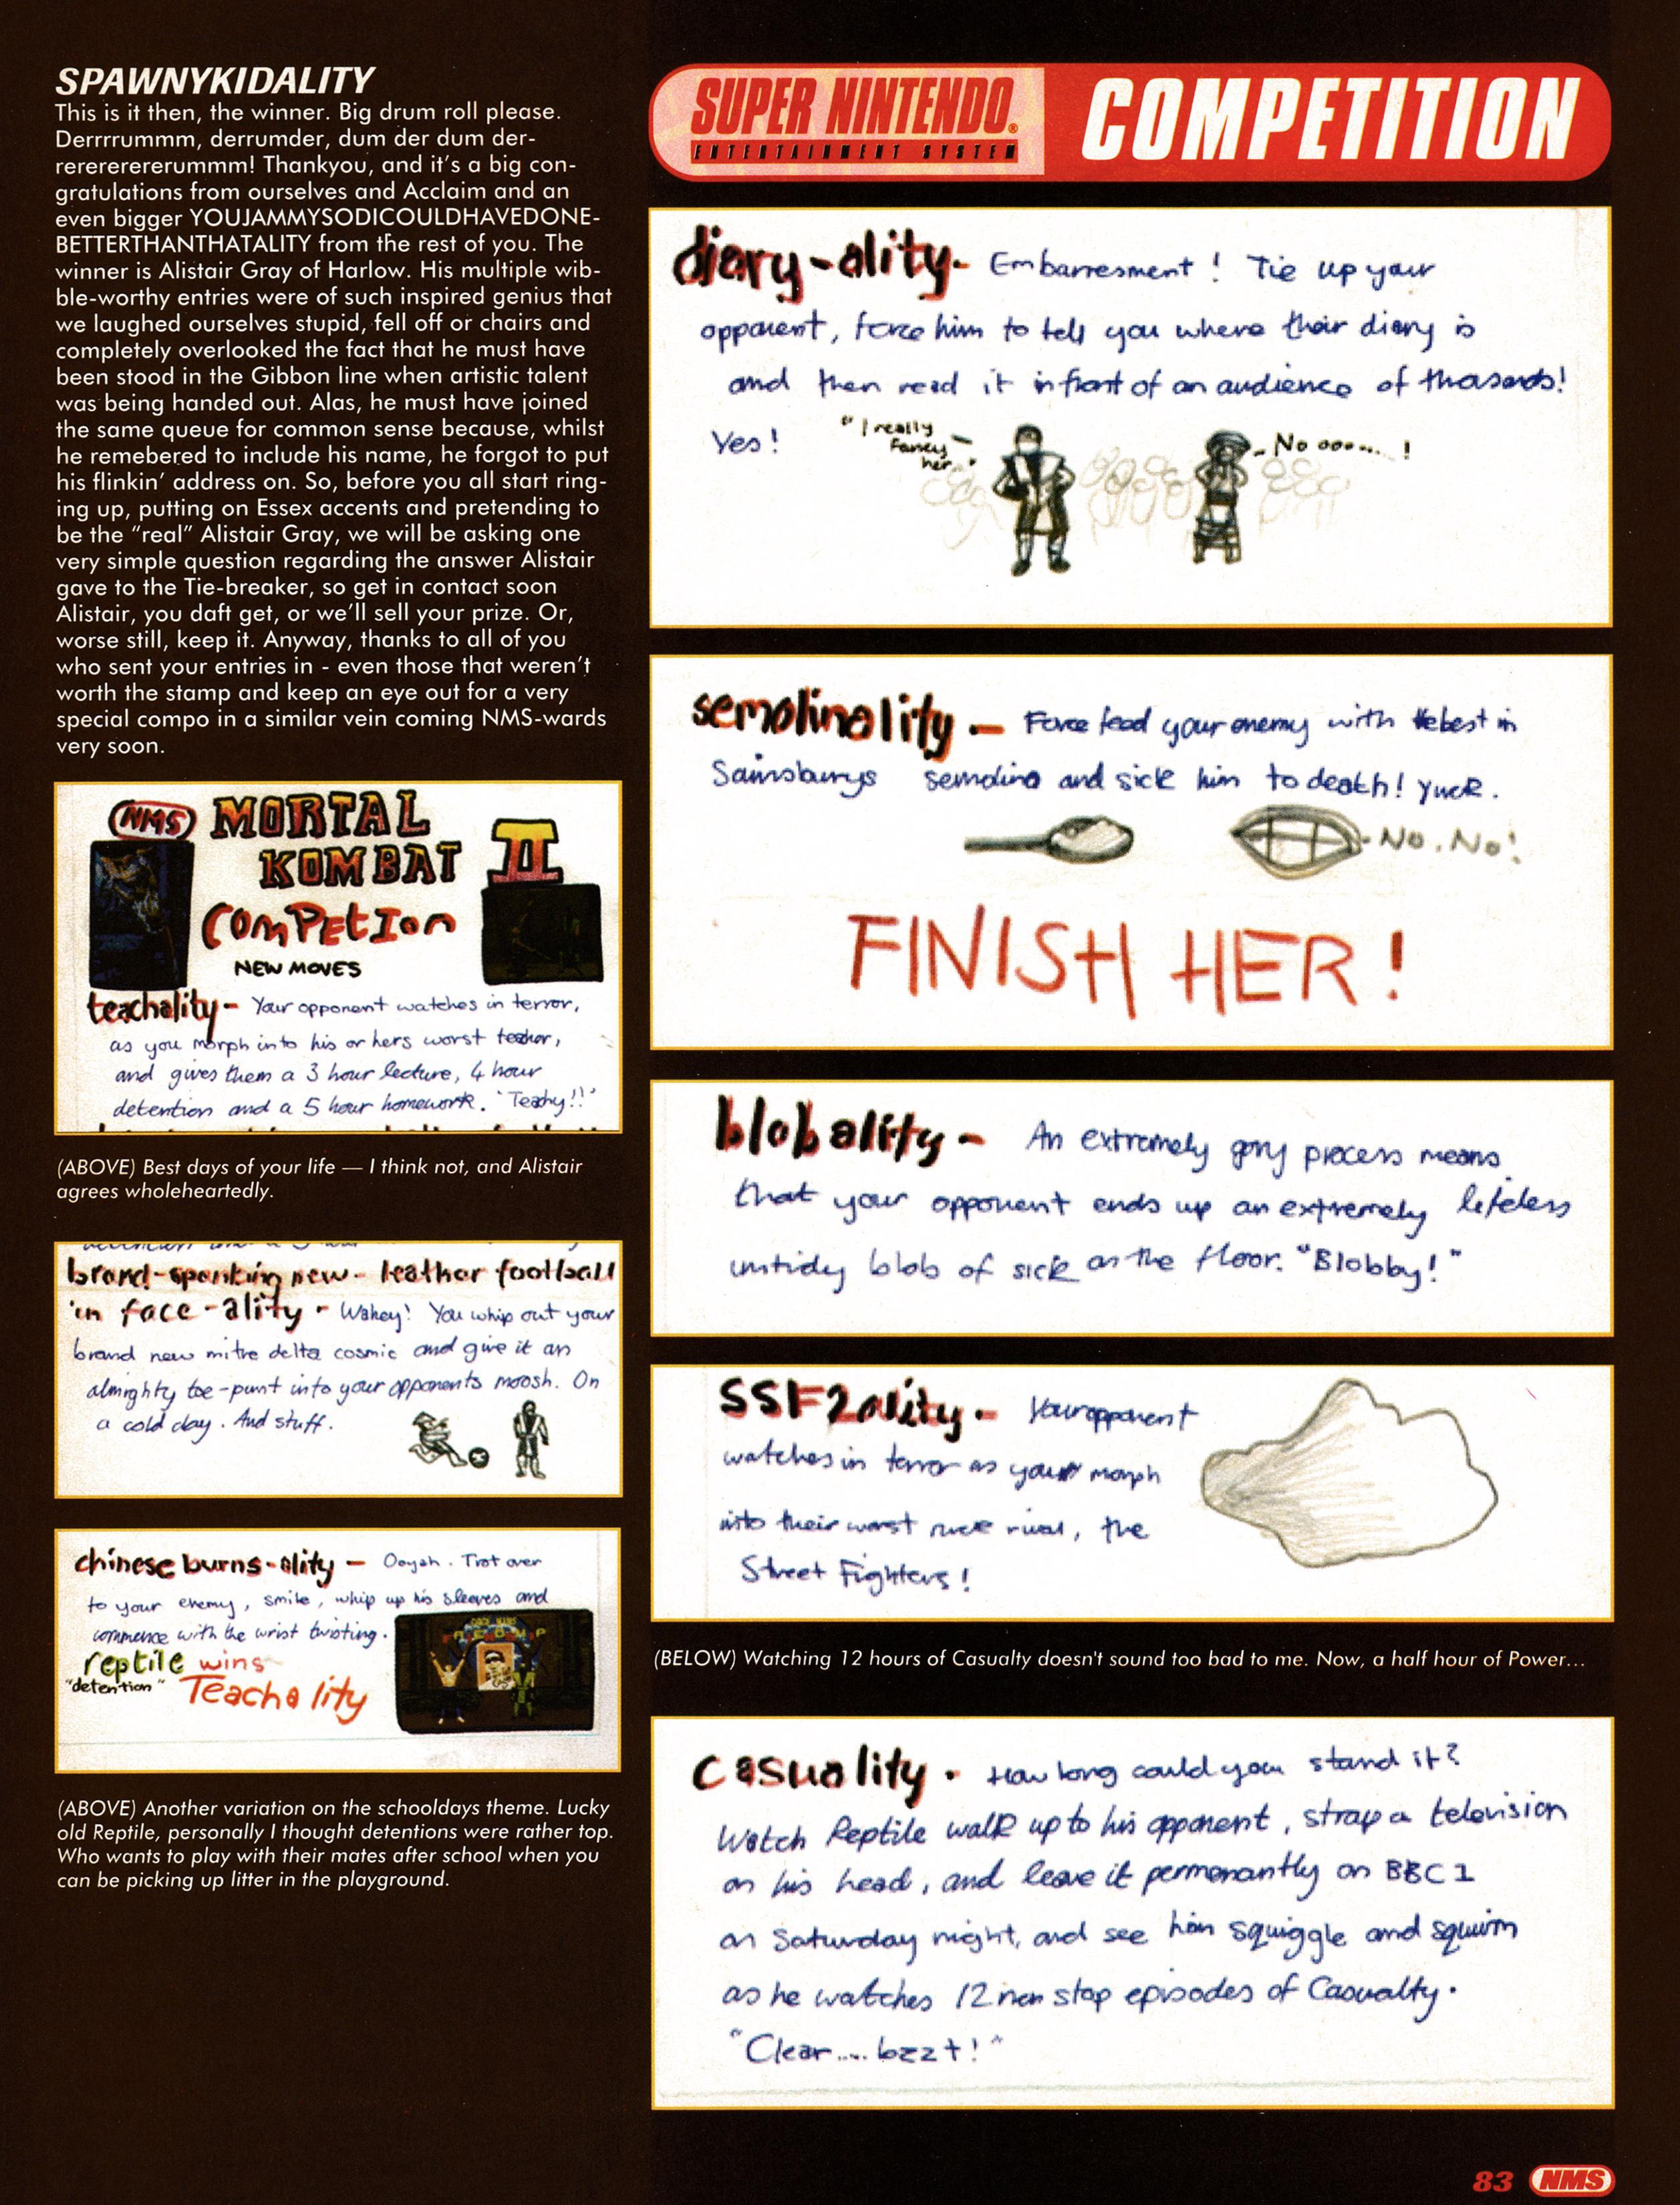 SPAWNYKIDALITY
This is it then, the winner. Big drum roll please.
Derrrrummm, derrumder, dum der dum der-
rerererererummm! Thankyou, and it's a big con-
gratulations from ourselves and Acclaim and an
even bigger YOUJAMMYSODICOULDHAVEDONE-
BETTERTHANTHATALITY from the rest of you. The
winner is Alistair Gray of Harlow. His multiple wib-
ble-worthy entries were of such inspired genius that
we laughed ourselves stupid, fell off or chairs and
completely overlooked the fact that he must have
been stood in the Gibbon line when artistic talent
was being handed out. Alas, he must have joined
the same queue for common sense because, whilst
he remebered to include his name, he forgot to put
his flinkin' address on. So, before you all start ring-
ing up, putting on Essex accents and pretending to
be the "real" Alistair Gray, we will be asking one
very simple question regarding the answer Alistair
gave to the Tie-breaker, so get in contact soon
Alistair, you daft get, or we'll sell your prize. Or,
worse still, keep it. Anyway, thanks to all of you
who sent your entries in - even those that weren't
worth the stamp and keep an eye out for a very
special compo in a similar vein coming NMS-wards
very soon.
NMS MORTAL
KOMBAT II
COMPETIon
NEW MOVES
teachality - Your opponent watches in terror,
as you morph into his or hers worst teacher,
and gives them a 3 hour lecture, 4 hour
detention and a 5 hour homework. 'Teachy!!'
(ABOVE) Best days of your life — I think not, and Alistair
agrees wholeheartedly.
brand-spanking new- leather football
in face-ality - Wahey! You whip out your
brand new mitre delta cosmic and give it an
almighty toe-punt into your opponents moosh. On
a cold day. And stuff.
chinese burns-ality - Ooyah. Trot over
to your enemy, smile, whip up his sleeves and
commence with the wrist twisting.
reptile wins
"detention" Teachality
(ABOVE) Another variation on the schooldays theme. Lucky
old Reptile, personally I thought detentions were rather top.
Who wants to play with their mates after school when you
can be picking up litter in the playground.
SUPER NINTENDO®
ENTERTAINMENT SYSTEM
COMPETITION
diary-ality- Embarresment! Tie up your
opponent, force him to tell you where their diary is
and then read it infront of an audience of thosands!
Yes!
"I really
fancy
her.."
No ooo.... !
semolinality - Force feed your enemy with the best in
Sainsburys semolina and sick him to death! yuck.
No, No!
FINISH HER!
blobality - An extremely gory process means
that your opponent ends up an extremely lifeless
untidy blob of sick on the floor. "Blobby!"
SSF2ality - Your opponent
watches in terror as your morph
into their worst rival, the
Street Fighters!
(BELOW) Watching 12 hours of Casualty doesn't sound too bad to me. Now, a half hour of Power...
casuality - How long could you stand it?
Watch Reptile walk up to his opponent, strap a television
on his head, and leave it permenantly on BBC 1
on Saturday night, and see him squiggle and squirm
as he watches 12 non stop episodes of Casualty.
"Clear.... bzzt!"
83 NMS